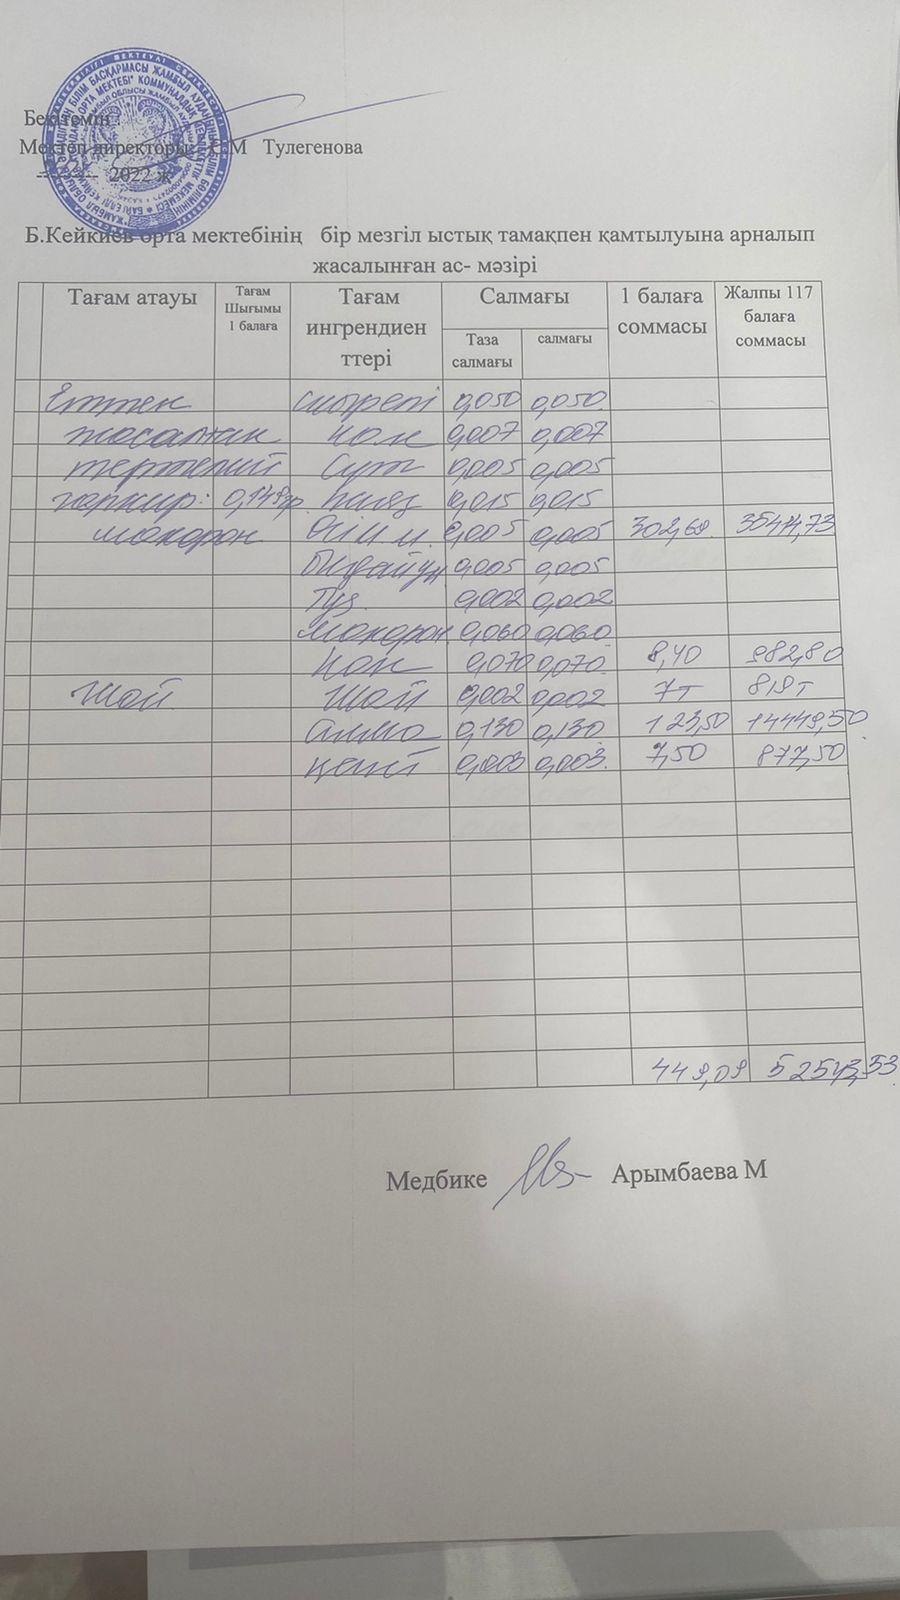 Бекітемін
Мектеп директоры: С.М Тулегенова
2022 ж
Б.Кейкиев орта мектебінің бір мезгіл ыстық тамақпен қамтылуына арналып
жасалынған ас- мәзірі
Тағам атауы Тағам Шығымы 1 балаға Тағам ингрендиен ттері Салмағы 1 балаға соммасы Жалпы 117 балаға соммасы
Таза салмағы салмағы
Еттен 0,050 0,050
жасалған нан 0,007 0,007
тефтелий сүт 0,005 0,005
гарнир: 0,149гр пияз 0,015 0,015
макарон өсім м. 0,005 0,005 302,69 35414,73
бидай ұн 0,005 0,005
Тұз 0,002 0,002
макарон 0,060 0,060
Нан 0,070 0,070 8,40 982,80
Шай Шай 0,002 0,002 7т 819т
Алма 0,130 0,130 123,50 14449,50
қант 0,003 0,003 7,50 877,50
449,09 52543,53
Медбике Арымбаева М